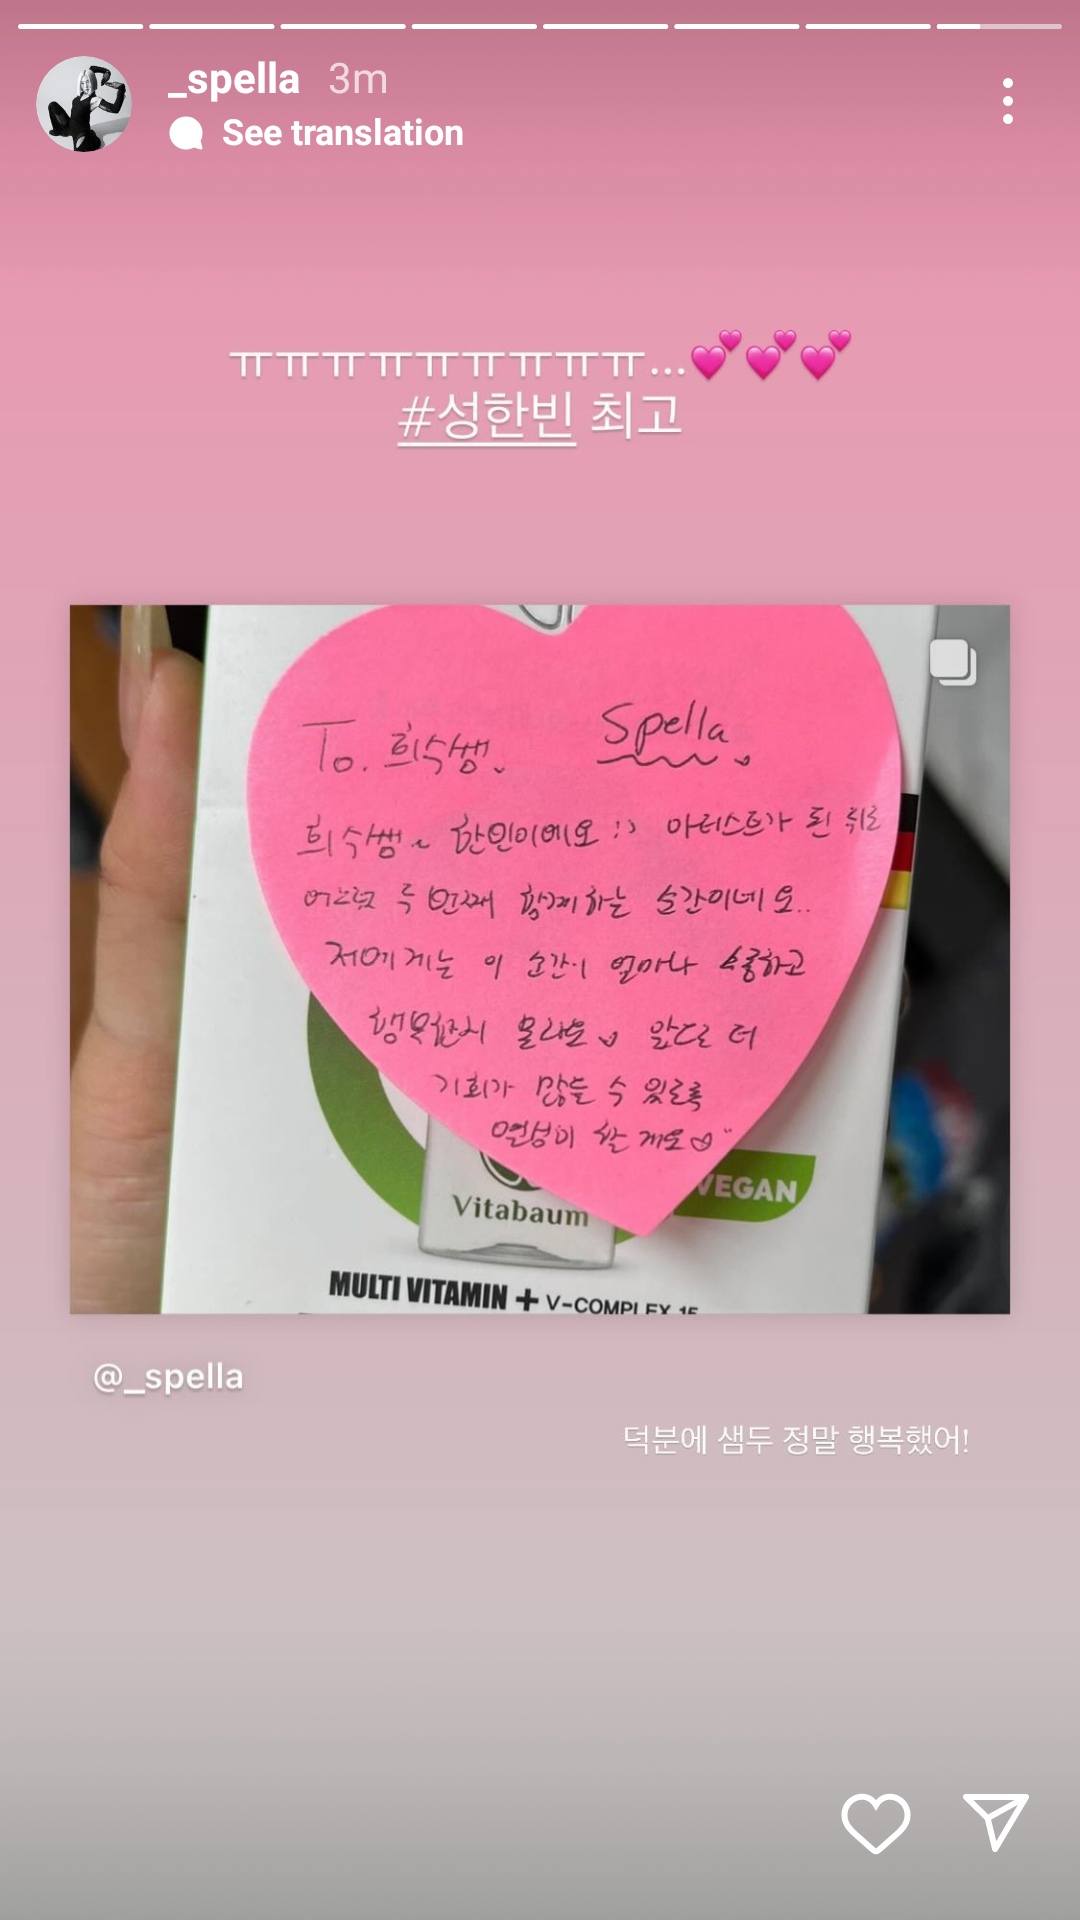 _spella 3m
See translation
ㅠㅠㅠㅠㅠㅠㅠㅠㅠ...💕💕💕
#성한빈 최고
To. 희수쌤. Spella
희수쌤~ 한빈이에요 :) 아티스트가 된 뒤로
어느덧 두 번째 함께하는 순간이네요..
저에게는 이 순간이 얼마나 소중하고
행복한지 몰라요 앞으로 더
기회가 많을 수 있도록
열심히 할게요♡"
VEGAN
Vitabaum
MULTI VITAMIN + V-COMPLEX 15
@_spella
덕분에 샘두 정말 행복했어!